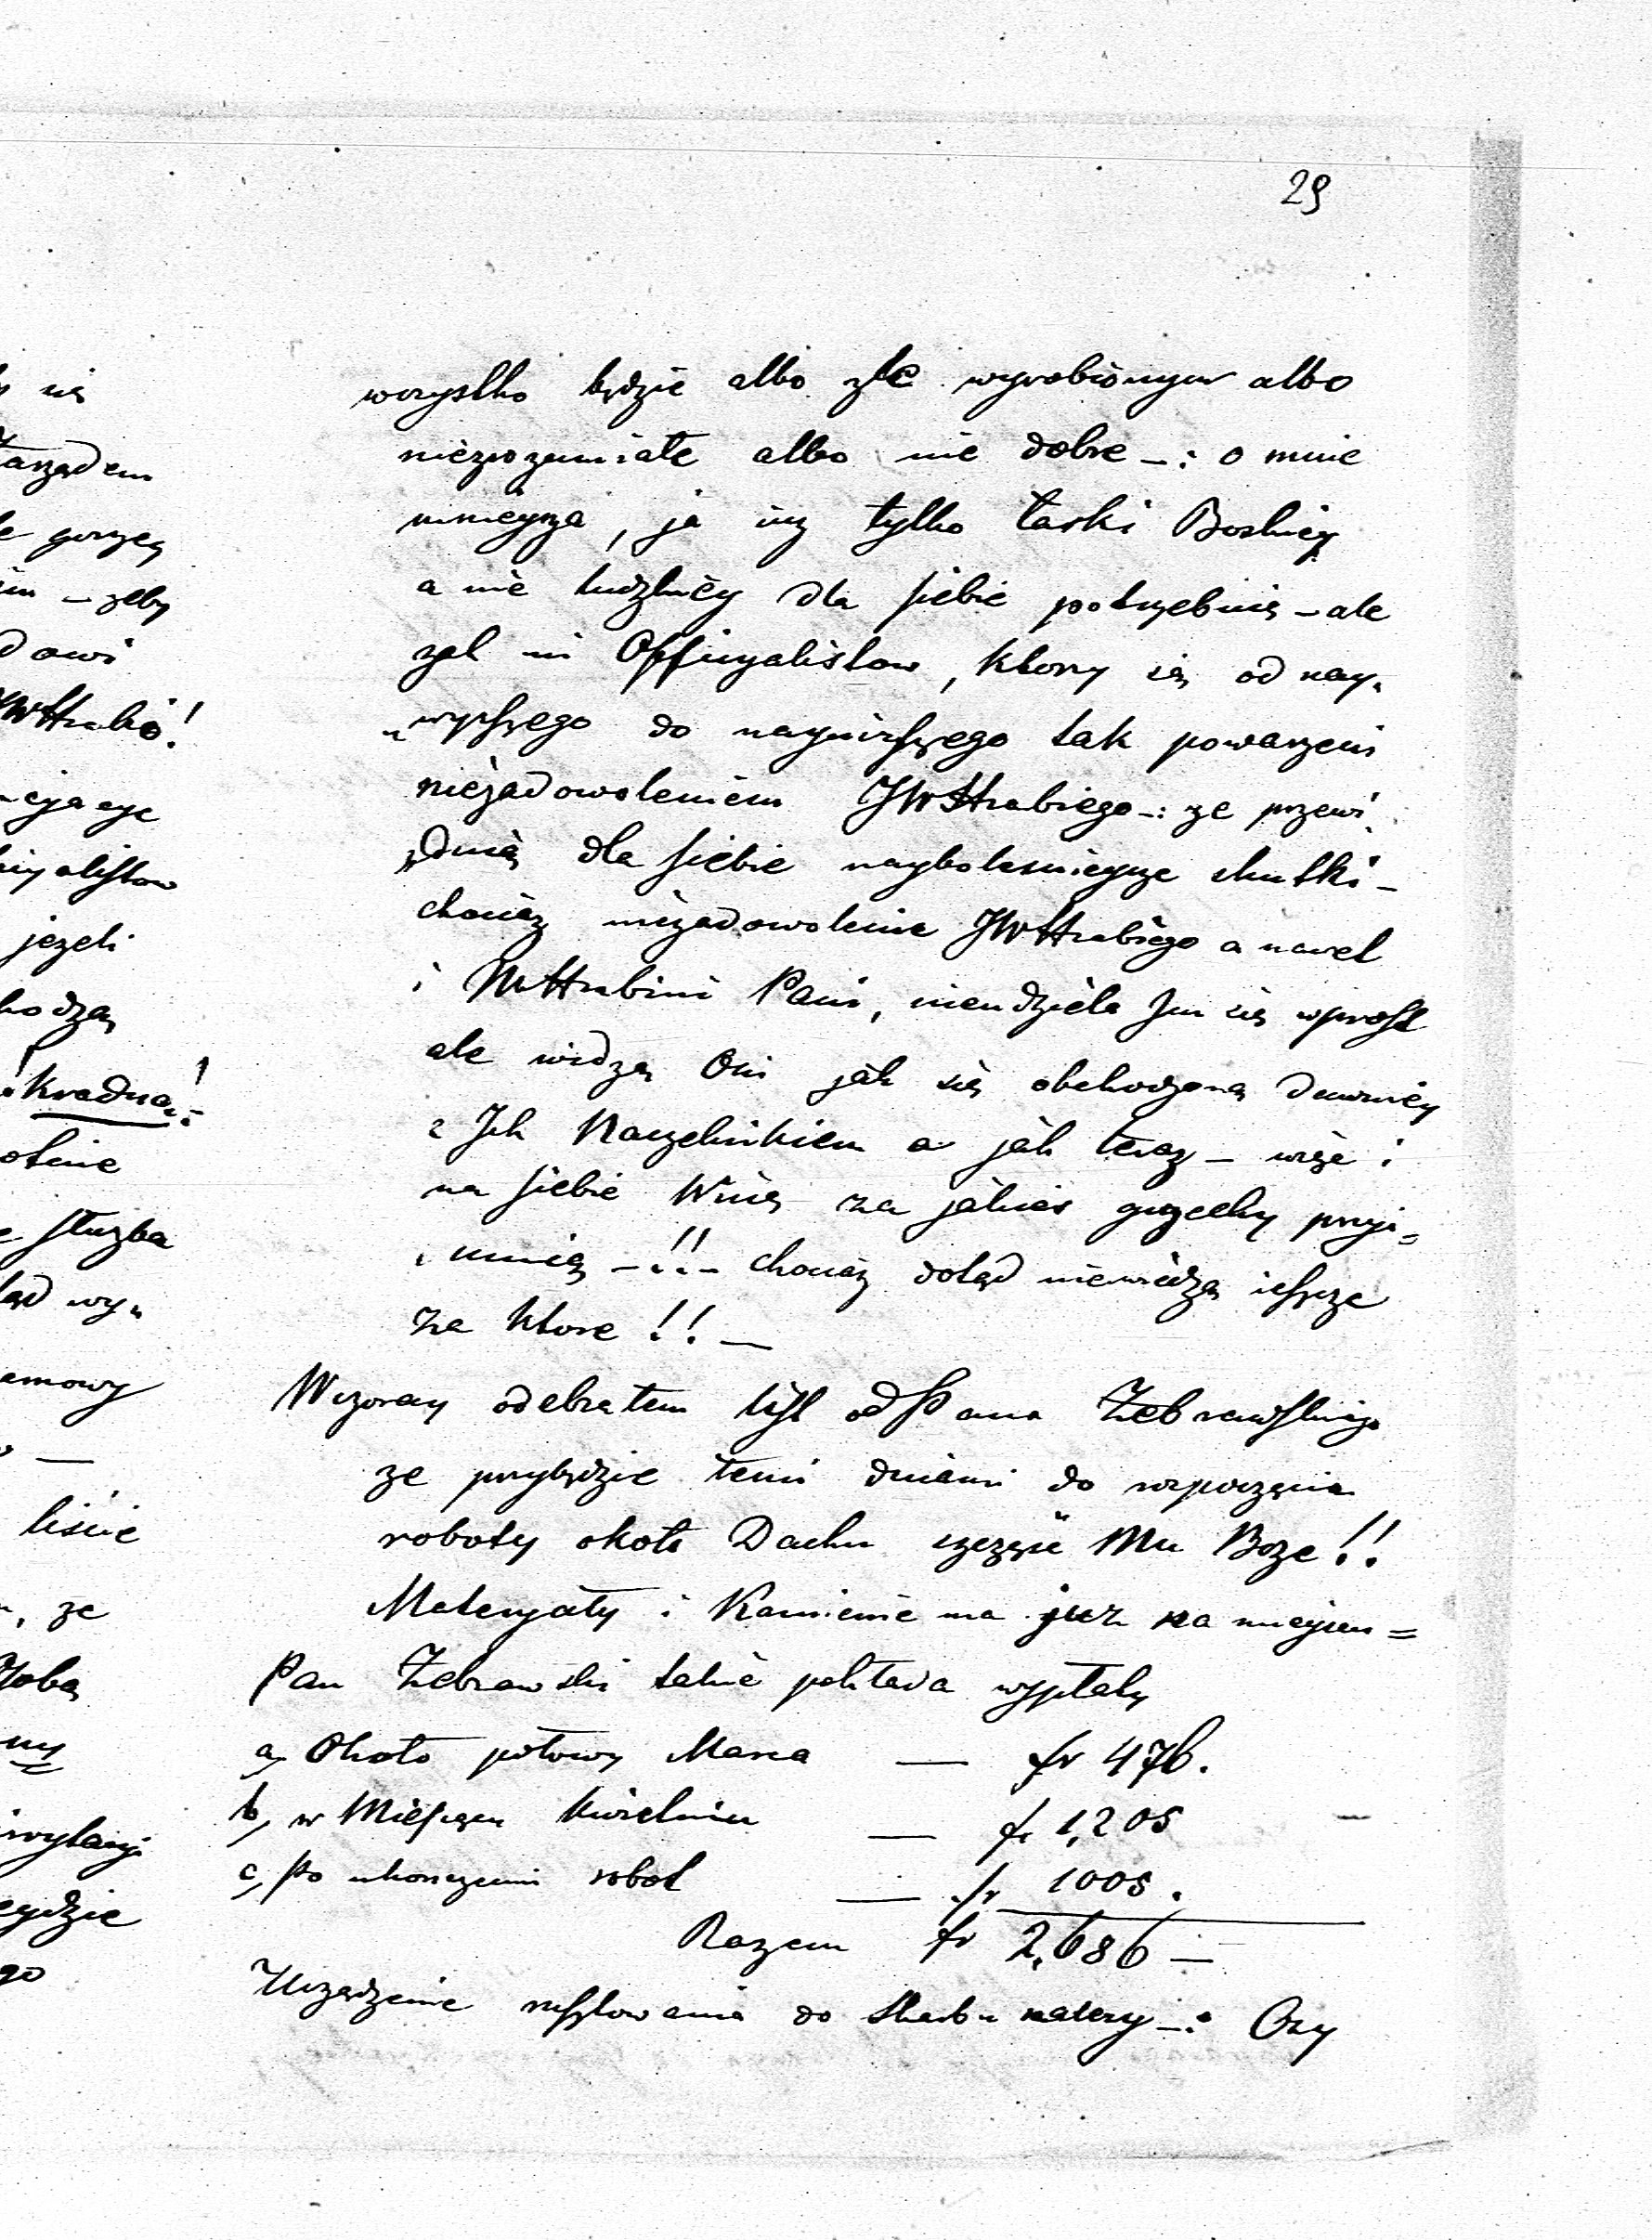 29
wszystko będzie albo złe wyrobionym albo
niezrozumiałe albo nie dobre -: o mnie
mnieysza, ja już tylko łaski Boskiey
a nie ludzkiey dla siebie potrzebuię - ale
żal mi Officyalistow, ktorzy są od nay-
wyższego do nayniższego tak powarzeni
niezadowoleniem JWHrabiego -: że przewi-
duią dla siebie nayboleśnieysze skutki -
chociaż niezadowolenie JWHrabiego a nawet
i JWHrabini Pani, nieudziela Im się wprost
ale widzą Oni jak się obchodzono dawniey
z Ich Naczelnikiem a jak teraz - więc i
na siebie Winę za jakieś grzechy przyi-
muią -!!- chociaż dotąd niewiedzą ieszcze
za ktore!! -
Wczoray odebrałem list od Pana Żebrawskiego
że przybędzie temi dniami do rozpoczęcia
roboty około Dachu szczęść Mu Boże!!
Materyały i Kamienie ma już na mieyscu =
Pan Żebrawski takie pokłada wypłaty
a, Około połowy Marca — fr 476.
b, w Miesiącu Kwietniu — fr 1,205
c, po ukończeniu robot — fr 1005.
Razem fr 2,686 —
Urządzenie rusztowania do Skarbu należy -: Czy
ię
Zarządem
- żeby
JWHrabio!
jeżeli
kradną!
służba
liście
, że